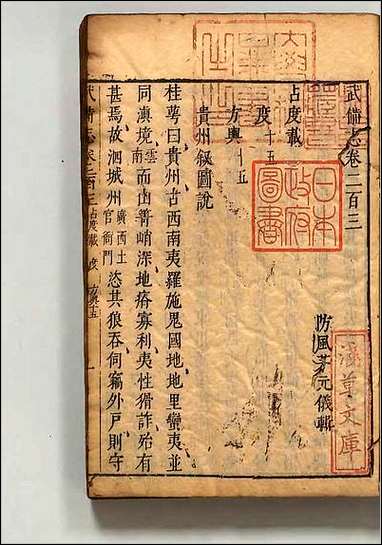 武備志卷二百三
防風茅元儀輯
占度載
度十五
方輿十五
貴州叙圖說
桂萼曰貴州古西南夷羅施鬼國地地里蠻夷並
同滇境雲南而山箐峭深地瘠寡利夷性猾詐殆有
甚焉故泗城州廣西土官衙門恣其狼吞伺竊外戶則守
武備志卷二百三 占度載 度 方輿十五
日本
政府
圖書
淺草文庫